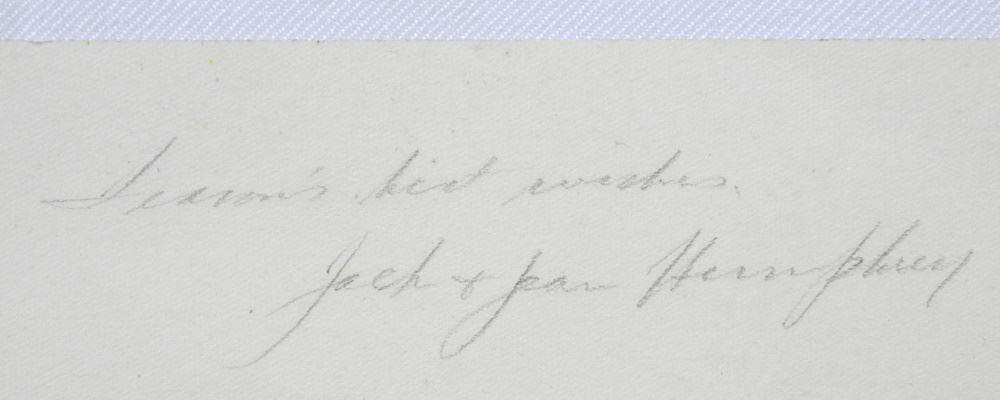 Season's best wishes.
Jack + Jean Humphrey